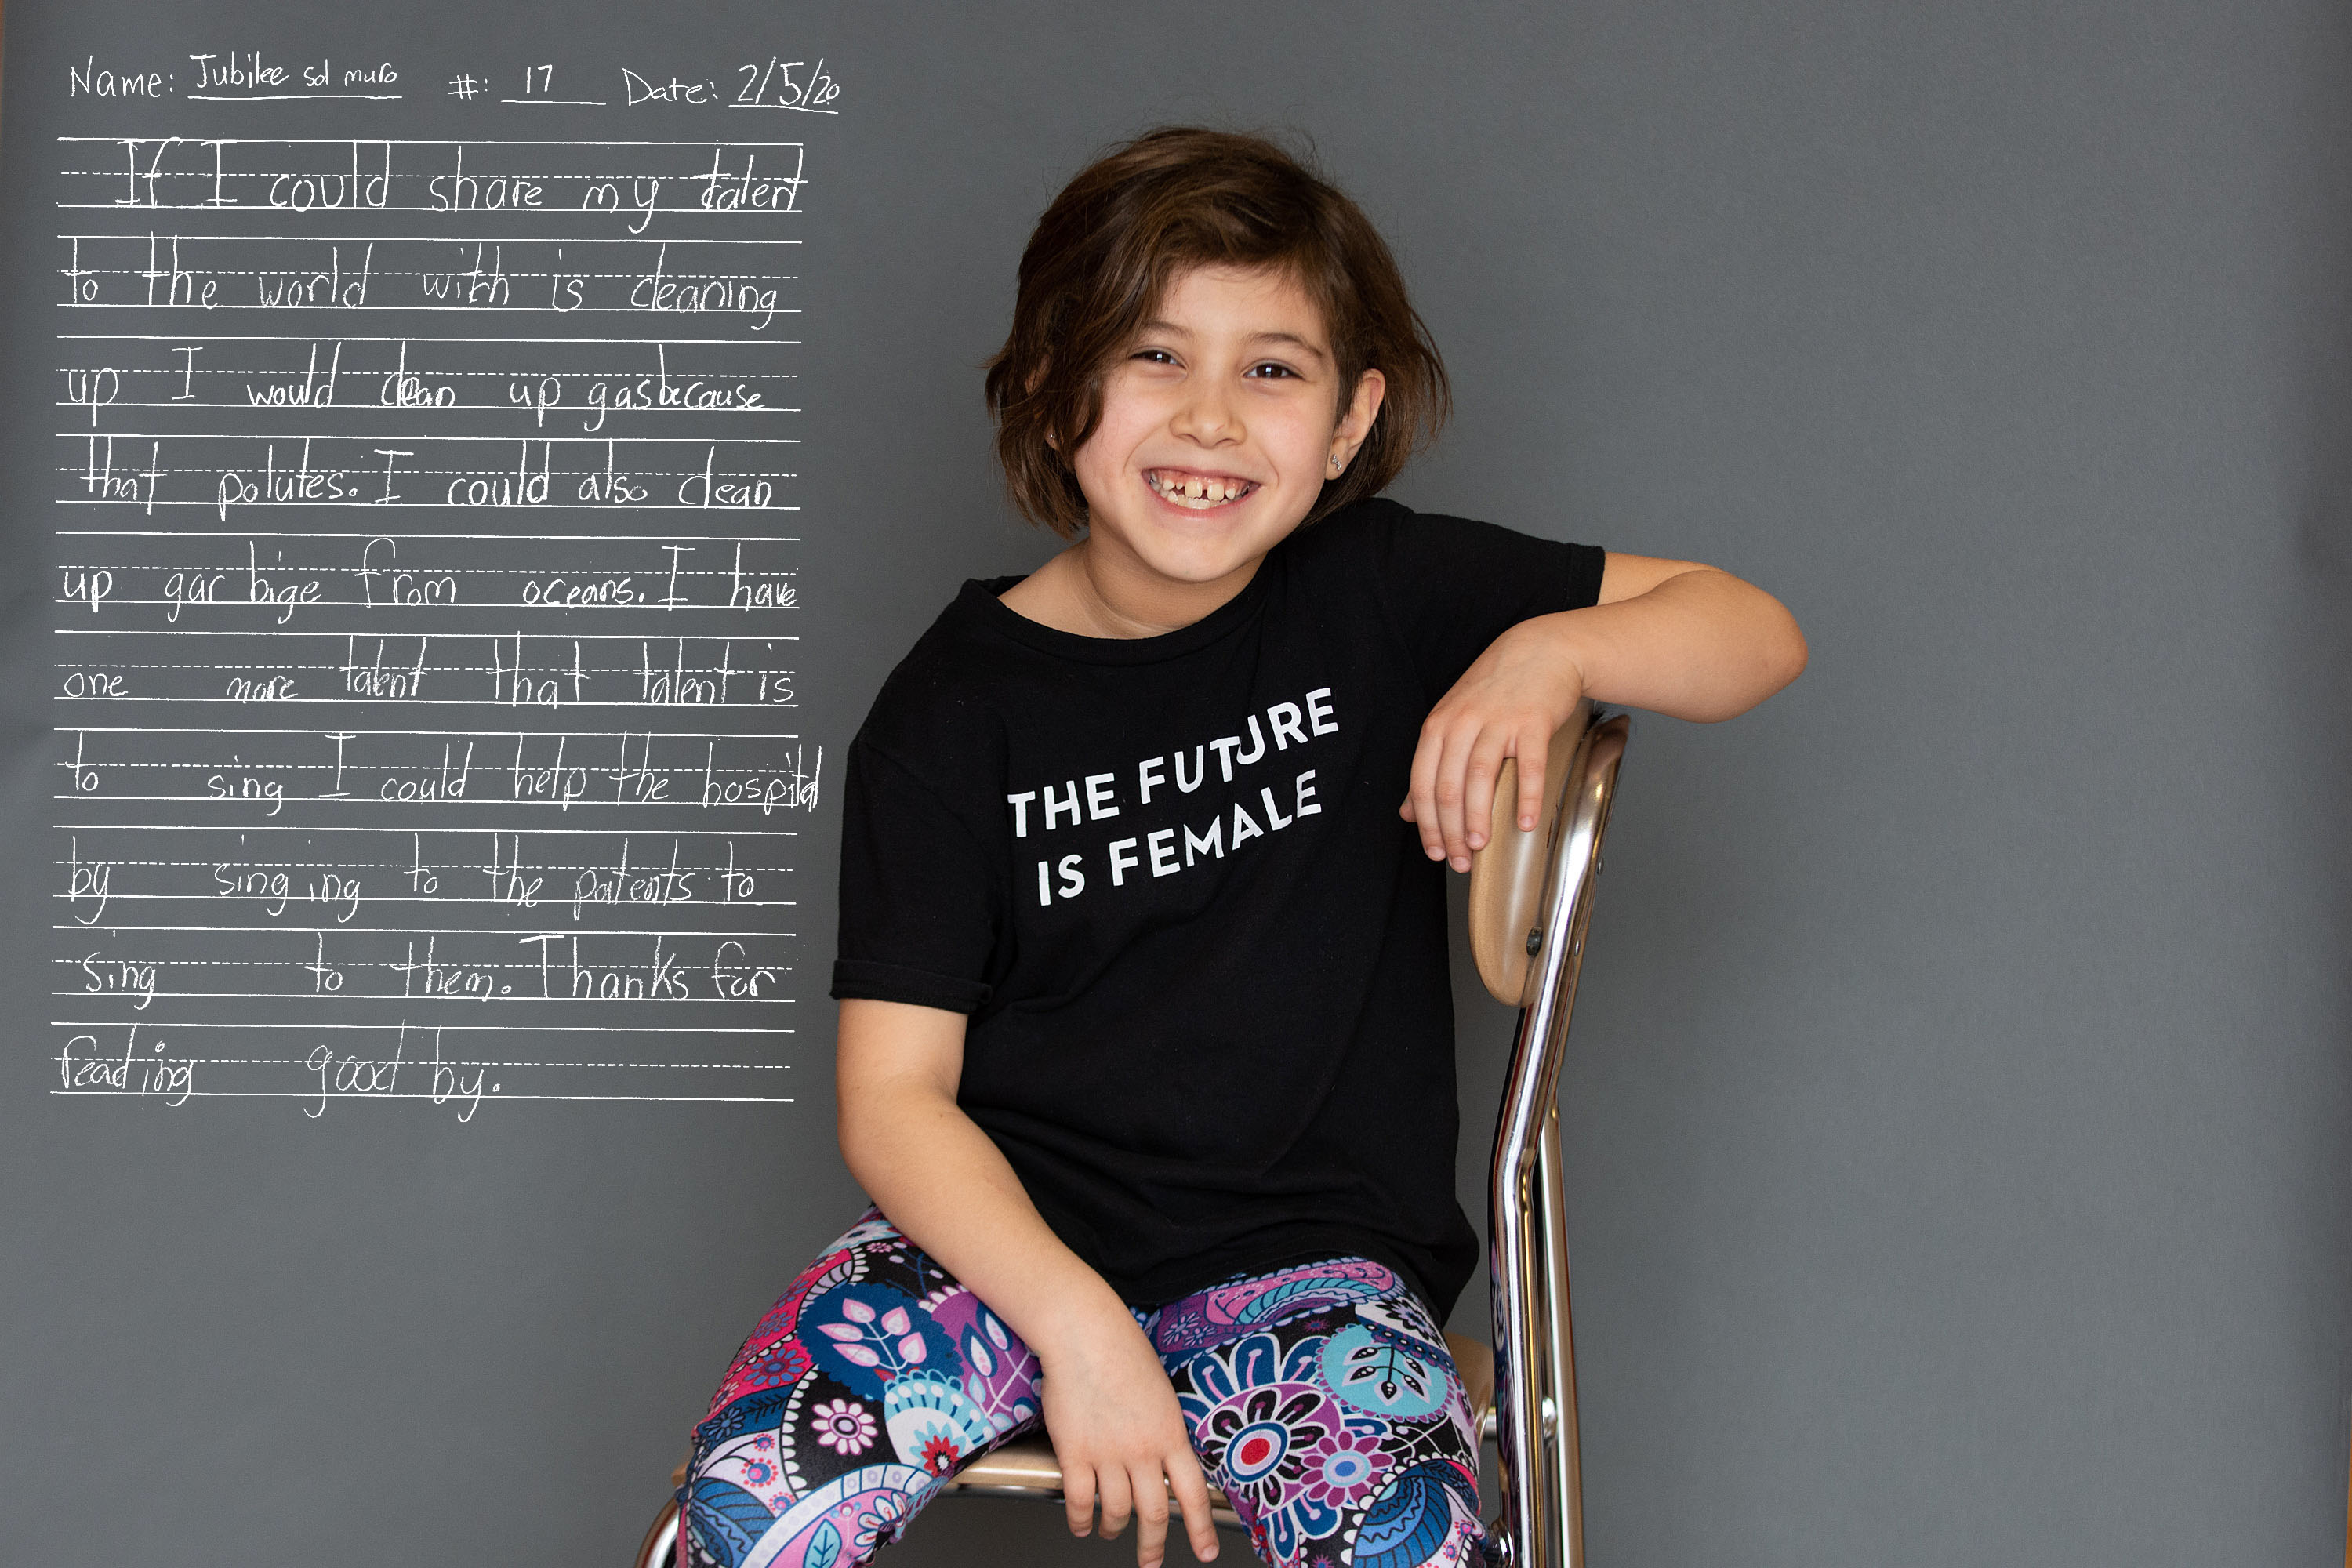 Name: Jubilee sol muro #: 17 Date: 2/5/20
If I could share my talent
to the world with is cleaning
up I would clean up gas because
that polutes. I could also clean
up gar bige from oceans. I have
one more talent that talent is
to sing I could help the hospital
by singing to the patents to
sing to them. Thanks for
reading good by.
THE FUTURE
IS FEMALE